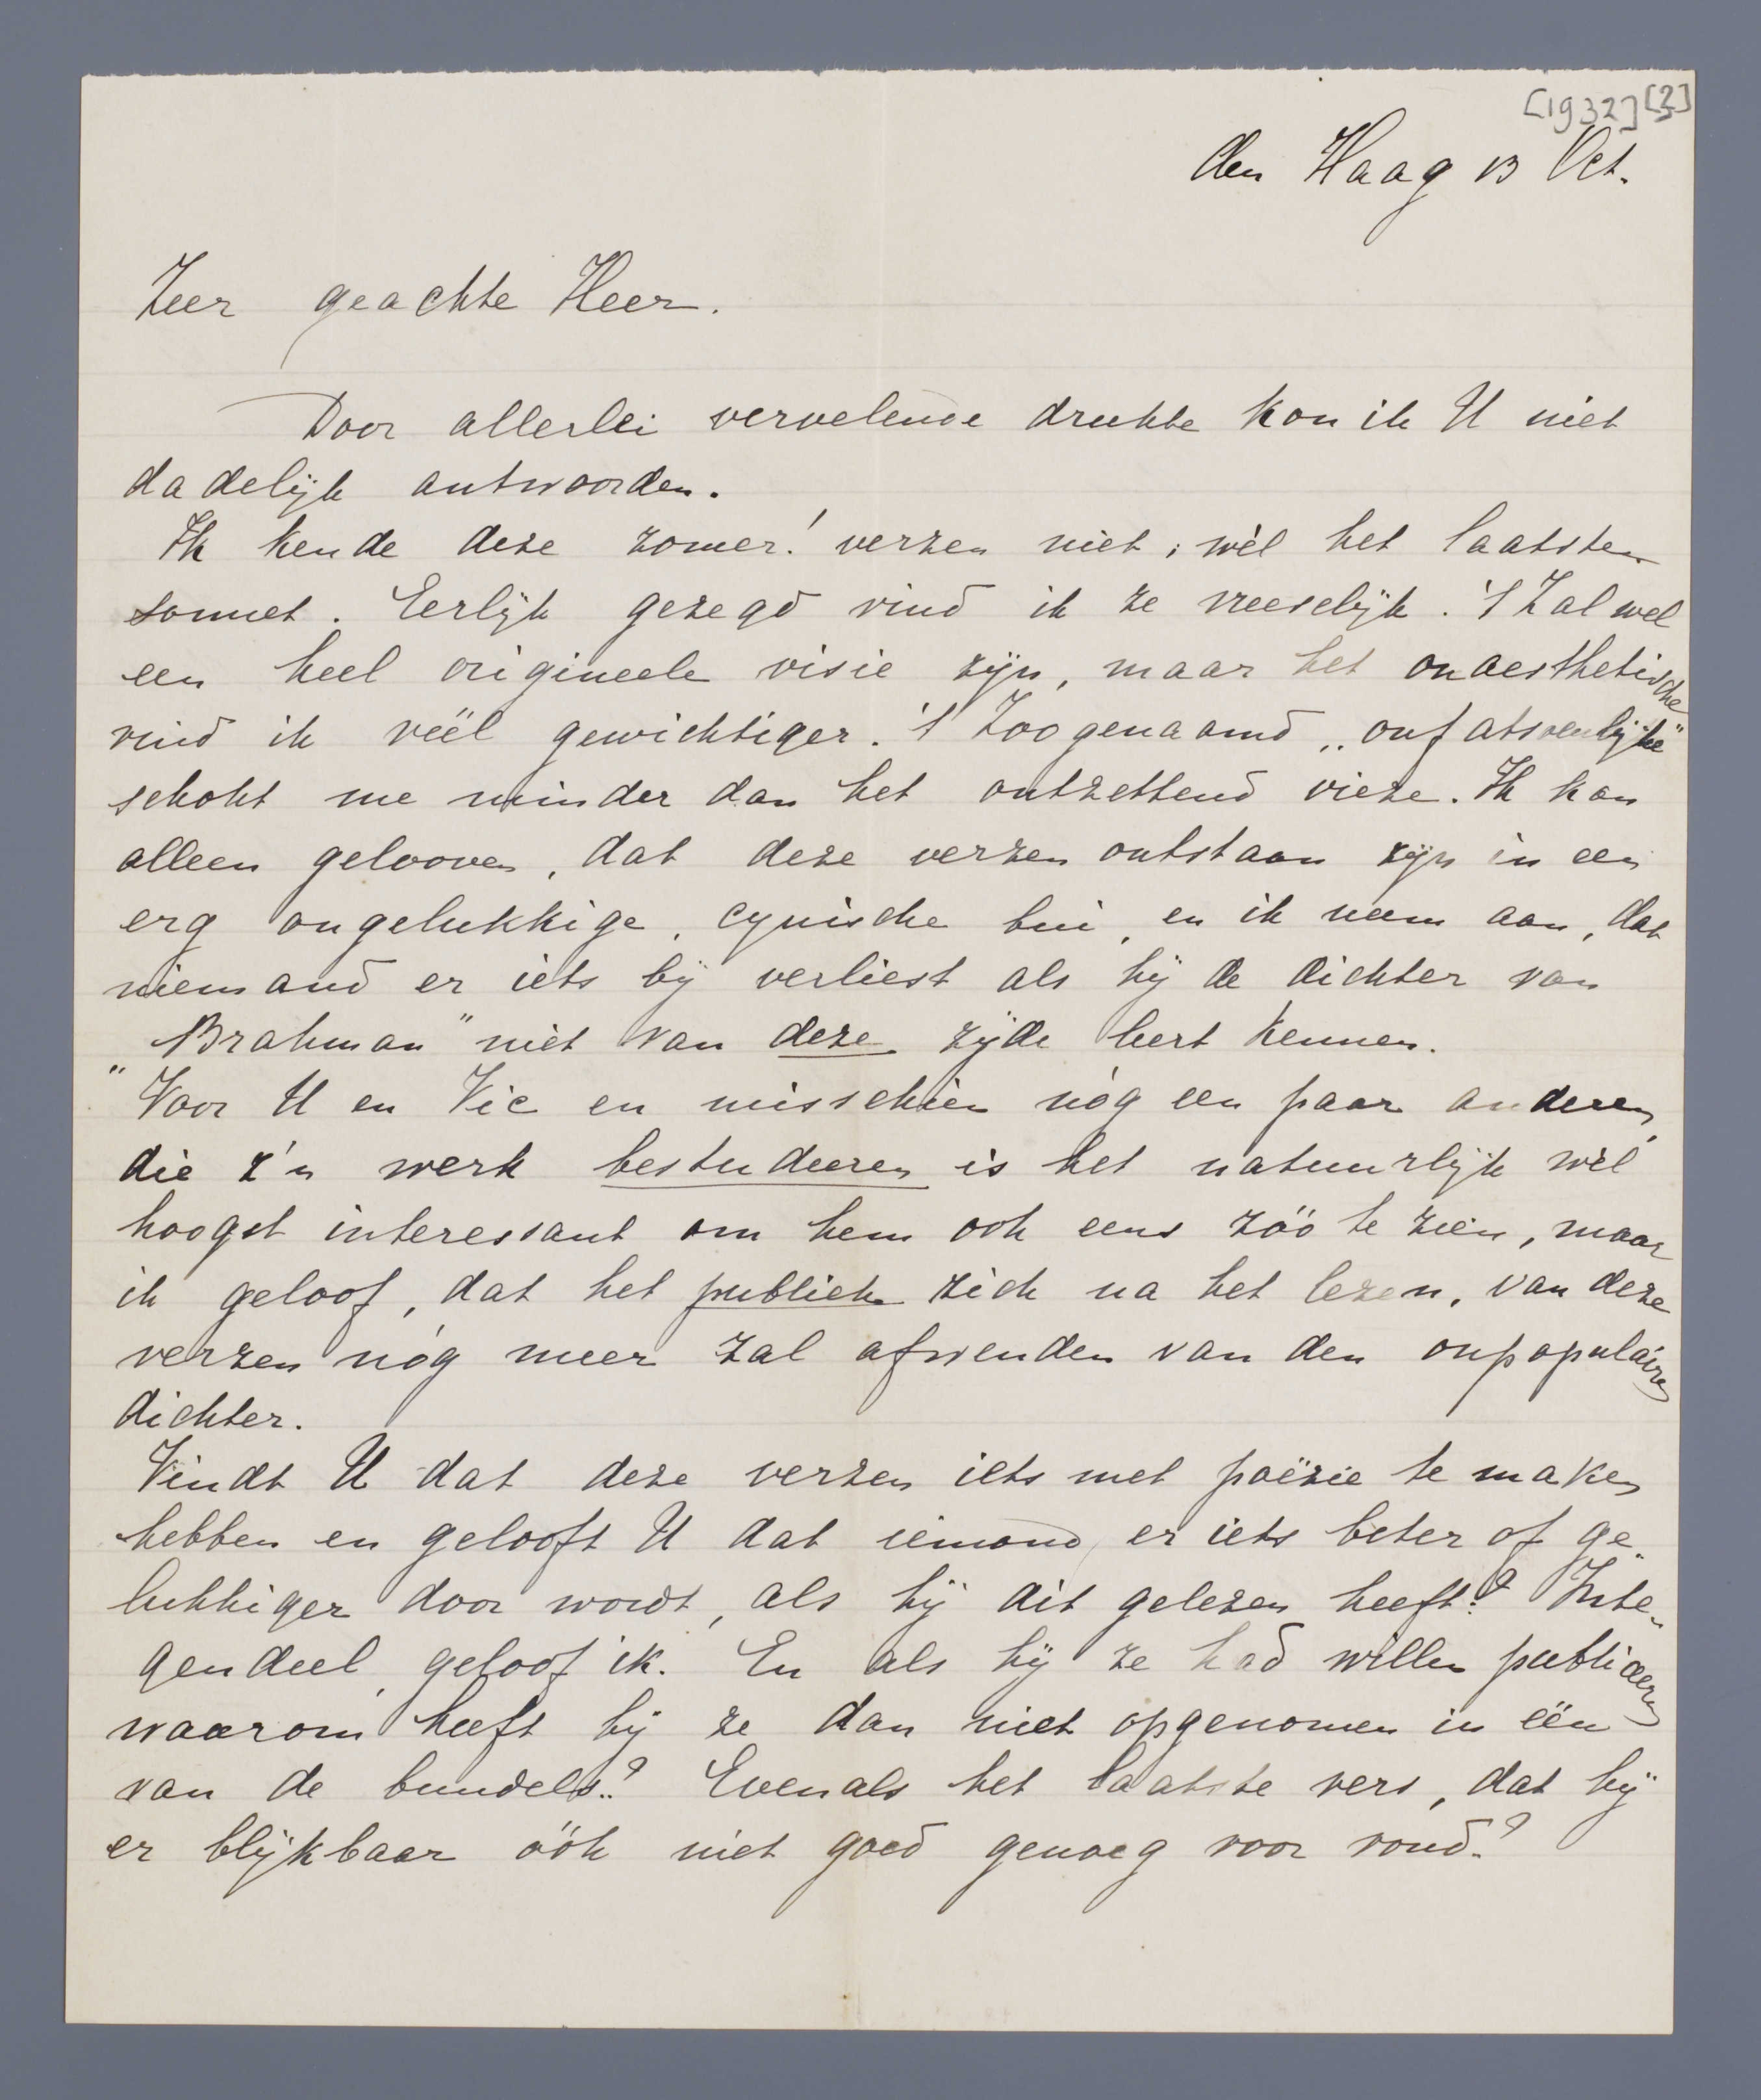 [1932] [?]
den Haag 13 Oct.
Zeer geachte Heer.
Door allerlei vervelende drukte kon ik U niet
dadelijk antwoorden.
Ik kende deze zomer! verzen niet; wèl het laatste
sonnet. Eerlijk gezegd vind ik ze vreeselijk. 't Zal wel
een heel origineele visie zijn, maar het onaesthetische
vind ik véél gewichtiger. 't Zoogenaamd „onfatsoenlijke"
schokt me minder dan het ontzettend vieze. Ik kan
alleen gelooven, dat deze verzen ontstaan zijn in een
erg ongelukkige, cynische bui, en ik neem aan, dat
niemand er iets bij verliest als hij de dichter van
„Brahman" niet van deze zijde leert kennen.
Voor U en Vic en misschien nóg een paar anderen,
die z'n werk bestudeeren is het natuurlijk wèl
hoogst interessant om hem ook eens zóó te zien, maar
ik geloof, dat het publiek zich na het lezen, van deze
verzen nóg meer zal afwenden van den onpopulairen
dichter.
Vindt U dat deze verzen iets met poëzie te maken
hebben en gelooft U dat iemand er iets beter of ge-
lukkiger door wordt, als hij dit gelezen heeft? Inte-
gendeel, geloof ik. En als hij ze had willen publiceeren
waarom heeft hij ze dan niet opgenomen in één
van de bundels? Evenals het laatste vers, dat hij
er blijkbaar óók niet goed genoeg voor vond?